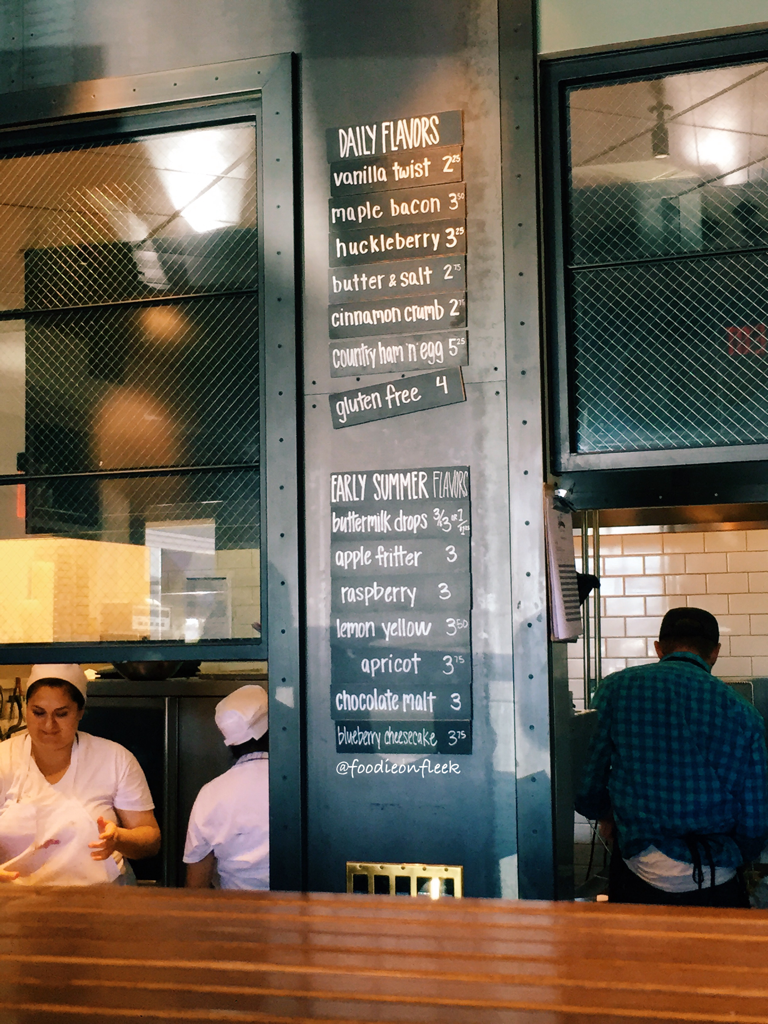 DAILY FLAVORS
vanilla twist 2.25
maple bacon 3.50
huckleberry 3.25
butter & salt 2.75
cinnamon crumb 2.75
country ham 'n' egg 5.25
gluten free 4
EARLY SUMMER FLAVORS
buttermilk drops
apple fritter 3
raspberry 3
lemon yellow 3.50
apricot 3.75
chocolate malt 3
blueberry cheesecake 3.75
@foodieonfleek